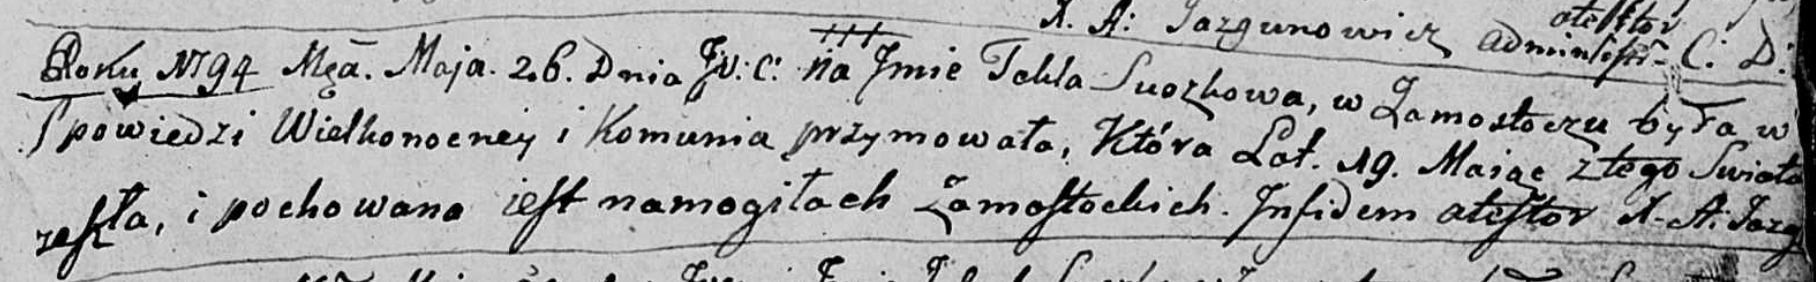 X. A: Jazgunowicz atesstor
administr- C: D:
Roku 1794 Mca. Maja. 26. Dnia Jv: C: na Jmie Tekla Suozkowa, w Zamostoczu była w
Spowiedzi Wielkonocney i Komunia przymowała, Która Lat. 19. Maiąc ztego Swiata
zeszła, i pochowana iest namogiłach Zamostockich. Jnfidem atestor X. A: Jazg